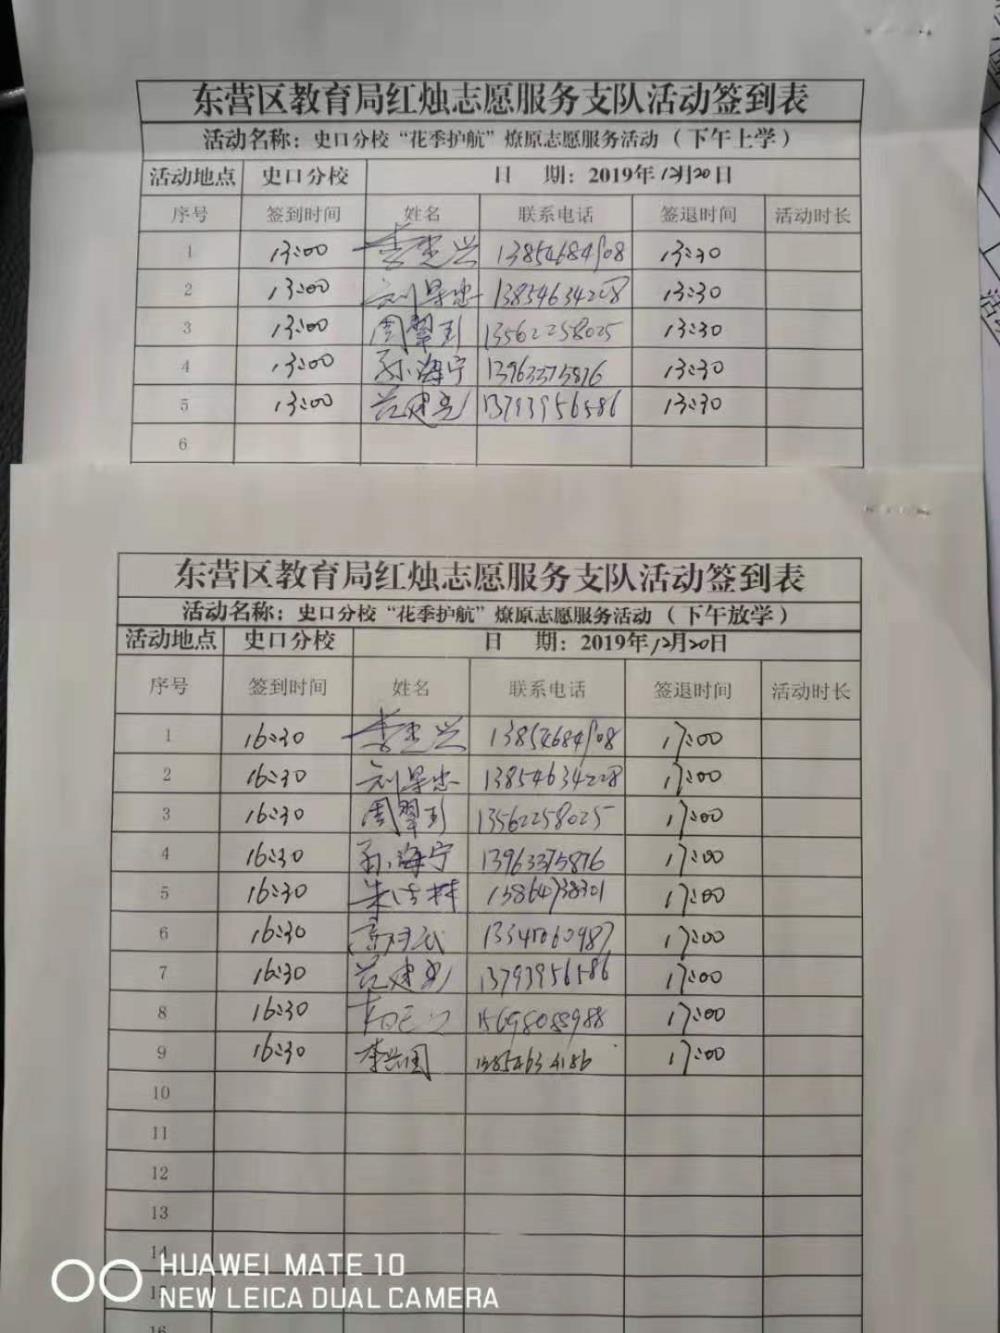 东营区教育局红烛志愿服务支队活动签到表
活动名称：史口分校“花季护航”燎原志愿服务活动（下午上学）
活动地点 史口分校 日 期：2019年12月20日
序号 签到时间 姓名 联系电话 签退时间 活动时长
1 13:00 13:30
2 13:00 刘景忠 13854634228 13:30
3 13:00 13562258025 13:30
4 13:00 孙海宁 13963375876 13:30
5 13:00 范建亮 13793956586 13:30
6
东营区教育局红烛志愿服务支队活动签到表
活动名称：史口分校“花季护航”燎原志愿服务活动（下午放学）
活动地点 史口分校 日 期：2019年12月20日
序号 签到时间 姓名 联系电话 签退时间 活动时长
1 16:30 17:00
2 16:30 刘景忠 13854634228 17:00
3 16:30 13562258025 17:00
4 16:30 孙海宁 13963375876 17:00
5 16:30 17:00
6 16:30 17:00
7 16:30 范建亮 13793956586 17:00
8 16:30 15698088988 17:00
9 16:30 李兴国 13854634186 17:00
10
11
12
13
14
15
16
HUAWEI MATE 10
NEW LEICA DUAL CAMERA